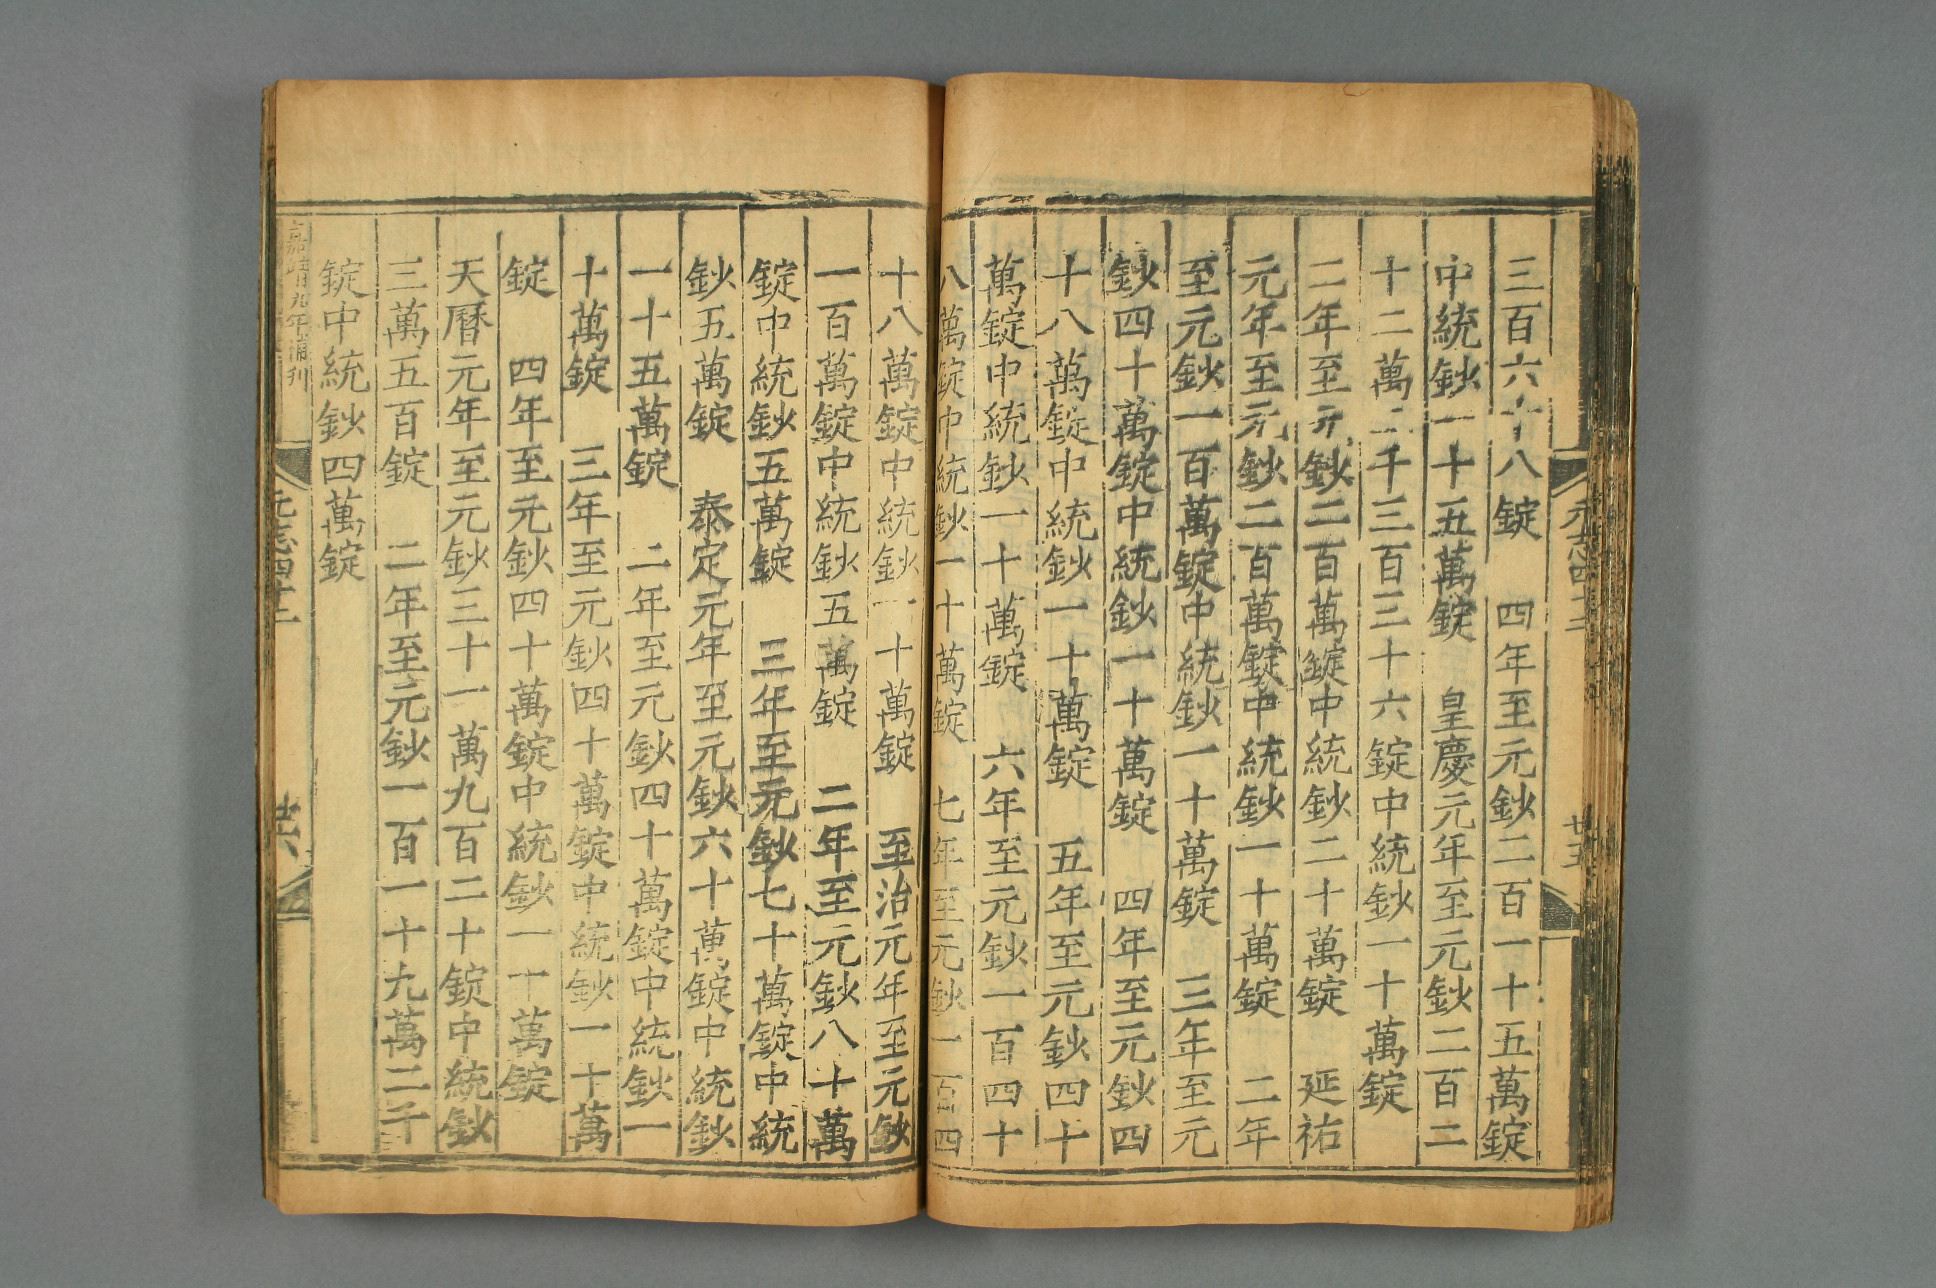 三百六十八錠　四年至元鈔二百一十五萬錠
中統鈔一十五萬錠　皇慶元年至元鈔二百二
十二萬二千三百三十六錠中統鈔一十萬錠
二年至元鈔二百萬錠中統鈔二十萬錠　延祐
元年至元鈔二百萬錠中統鈔一十萬錠　二年
至元鈔一百萬錠中統鈔一十萬錠　三年至元
鈔四十萬錠中統鈔一十萬錠　四年至元鈔四
十八萬錠中統鈔一十萬錠　五年至元鈔四十
萬錠中統鈔一十萬錠　六年至元鈔一百四十
八萬錠中統鈔一十萬錠　七年至元鈔一百四
十八萬錠中統鈔一十萬錠　至治元年至元鈔
一百萬錠中統鈔五萬錠　二年至元鈔八十萬
錠中統鈔五萬錠　三年至元鈔七十萬錠中統
鈔五萬錠　泰定元年至元鈔六十萬錠中統鈔
一十五萬錠　二年至元鈔四十萬錠中統鈔一
十萬錠　三年至元鈔四十萬錠中統鈔一十萬
錠　四年至元鈔四十萬錠中統鈔一十萬錠
天曆元年至元鈔三十一萬九百二十錠中統鈔
三萬五百錠　二年至元鈔一百一十九萬二千
錠中統鈔四萬錠
嘉靖九年補刊
元志四十二
廿六